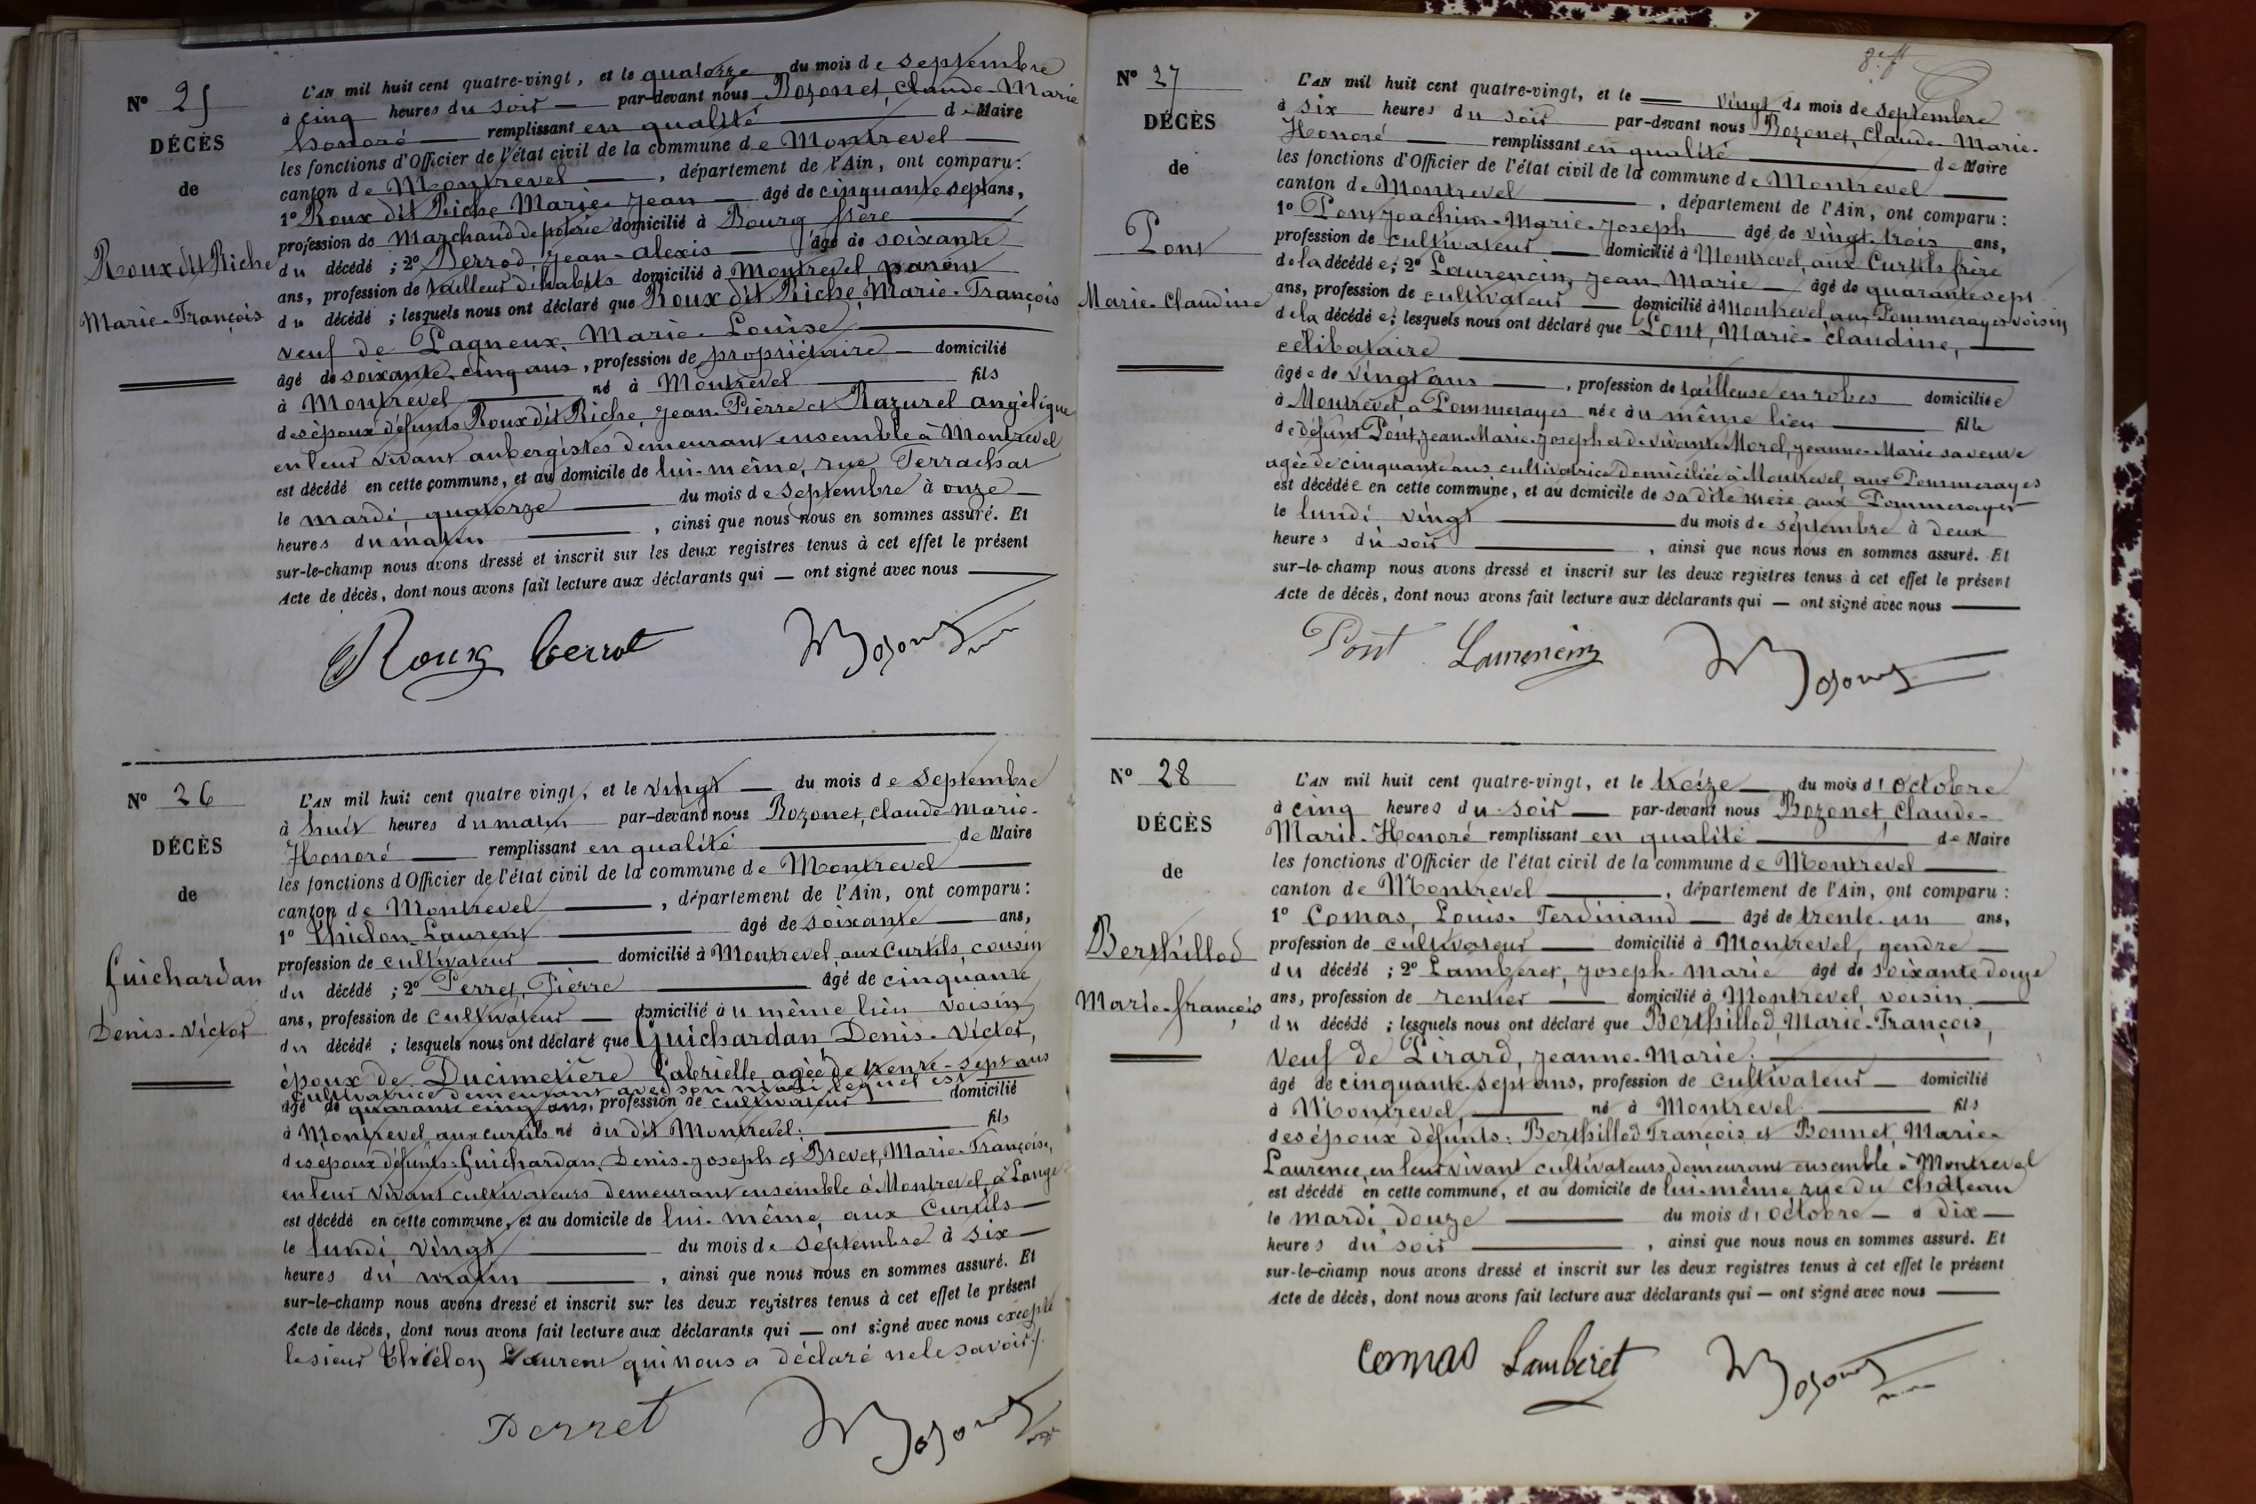 N° 25
DÉCÈS
de
Roux dit Riche
Marie-François
L'AN mil huit cent quatre-vingt, et le quatorze du mois de septembre
à cinq heures du soir par-devant nous Bozonet, Claude-Marie
honoré remplissant en qualité de Maire
les fonctions d'Officier de l'état civil de la commune de Montrevel
canton de Montrevel, département de l'Ain, ont comparu:
1° Roux dit Riche Marie-Jean âgé de cinquante sept ans,
profession de Marchand de poterie domicilié à Bourg frère
du décédé ; 2° Perrod, Jean-Alexis âgé de soixante
ans, profession de tailleur d'habits domicilié à Montrevel parent
du décédé ; lesquels nous ont déclaré que Roux dit Riche, Marie-François
veuf de Pagneux, Marie-Louise
âgé de soixante-cinq ans, profession de propriétaire domicilié
à Montrevel né à Montrevel fils
des époux défunts Roux dit Riche, Jean-Pierre et Razurel angélique
en leur vivant aubergistes demeurant ensemble à Montrevel
est décédé en cette commune, et au domicile de lui-même, rue Terrachat
le mardi quatorze du mois de septembre à onze
heures du matin, ainsi que nous nous en sommes assuré. Et
sur-le-champ nous avons dressé et inscrit sur les deux registres tenus à cet effet le présent
Acte de décès, dont nous avons fait lecture aux déclarants qui — ont signé avec nous
Roux Perrod Bozonet
N° 26
DÉCÈS
de
Guichardan
Denis-Victor
L'AN mil huit cent quatre-vingt, et le vingt du mois de septembre
à huit heures du matin par-devant nous Bozonet, Claude-Marie-
Honoré remplissant en qualité de Maire
les fonctions d'Officier de l'état civil de la commune de Montrevel
canton de Montrevel, département de l'Ain, ont comparu:
1° Thiélon Laurent âgé de soixante ans,
profession de cultivateur domicilié à Montrevel, aux Curtils, cousin
du décédé ; 2° Perret, Pierre âgé de cinquante
ans, profession de cultivateur domicilié au même lieu voisin
du décédé ; lesquels nous ont déclaré que Guichardan Denis-Victor,
époux de Ducimetière Gabrielle agée de trente-sept ans
cultivatrice demeurant avec son mari lequel est
âgé de quarante cinq ans, profession de cultivateur domicilié
à Montrevel aux curtils né au dit Montrevel; fils
des époux défunts: Guichardan, Denis-Joseph et Brevet, Marie-Françoise,
en leur vivant cultivateurs demeurant ensemble à Montrevel, à Lange
est décédé en cette commune, et au domicile de lui-même, aux Curtils
le lundi vingt du mois de septembre à six
heures du matin, ainsi que nous nous en sommes assuré. Et
sur-le-champ nous avons dressé et inscrit sur les deux registres tenus à cet effet le présent
Acte de décès, dont nous avons fait lecture aux déclarants qui — ont signé avec nous excepté
le sieur Thiélon Laurent qui nous a déclaré ne le savoir./.
Perret Bozonet
N° 27
DÉCÈS
de
Pont
Marie-Claudine
L'AN mil huit cent quatre-vingt, et le vingt du mois de septembre
à six heures du soir par-devant nous Bozonet, Claude-Marie-
Honoré remplissant en qualité de Maire
les fonctions d'Officier de l'état civil de la commune de Montrevel
canton de Montrevel, département de l'Ain, ont comparu:
1° Pont Joachim-Marie-Joseph âgé de vingt-trois ans,
profession de cultivateur domicilié à Montrevel, aux Curtils frère
de la décédée; 2° Laurencin, Jean-Marie âgé de quarante sept
ans, profession de cultivateur domicilié à Montrevel, aux Pommerayes voisin
de la décédée; lesquels nous ont déclaré que Pont, Marie-Claudine,
célibataire
âgée de vingt ans, profession de tailleuse en robes domiciliée
à Montrevel, à Pommerayes née au même lieu fille
de défunt Pont, Jean-Marie-Joseph et de vivante Morel, Jeanne-Marie sa veuve
agée de cinquante ans cultivatrice domiciliée à Montrevel, aux Pommerayes
est décédée en cette commune, et au domicile de sa dite mère, aux Pommerayes
le lundi vingt du mois de septembre à deux
heures du soir, ainsi que nous nous en sommes assuré. Et
sur-le-champ nous avons dressé et inscrit sur les deux registres tenus à cet effet le présent
Acte de décès, dont nous avons fait lecture aux déclarants qui — ont signé avec nous
Pont Laurencin Bozonet
N° 28
DÉCÈS
de
Berthillod
Marie-françois
L'AN mil huit cent quatre-vingt, et le treize du mois d'octobre
à cinq heures du soir par-devant nous Bozonet, Claude-
Marie-Honoré remplissant en qualité de Maire
les fonctions d'Officier de l'état civil de la commune de Montrevel
canton de Montrevel, département de l'Ain, ont comparu:
1° Comas, Louis-Ferdinand âgé de trente-un ans,
profession de cultivateur domicilié à Montrevel, gendre
du décédé ; 2° Lamberet, Joseph-Marie âgé de soixante douze
ans, profession de rentier domicilié à Montrevel, voisin
du décédé ; lesquels nous ont déclaré que Berthillod, Marie-François,
veuf de Pirard, Jeanne-Marie;
âgé de cinquante-sept ans, profession de cultivateur domicilié
à Montrevel, né à Montrevel fils
des époux défunts: Berthillod François et Bonnet, Marie-
Laurence, en leur vivant cultivateurs, demeurant ensemble à Montrevel
est décédé en cette commune, et au domicile de lui-même, rue du Château
le mardi, douze du mois d'octobre à dix
heures du soir, ainsi que nous nous en sommes assuré. Et
sur-le-champ nous avons dressé et inscrit sur les deux registres tenus à cet effet le présent
Acte de décès, dont nous avons fait lecture aux déclarants qui — ont signé avec nous
Comas Lamberet Bozonet